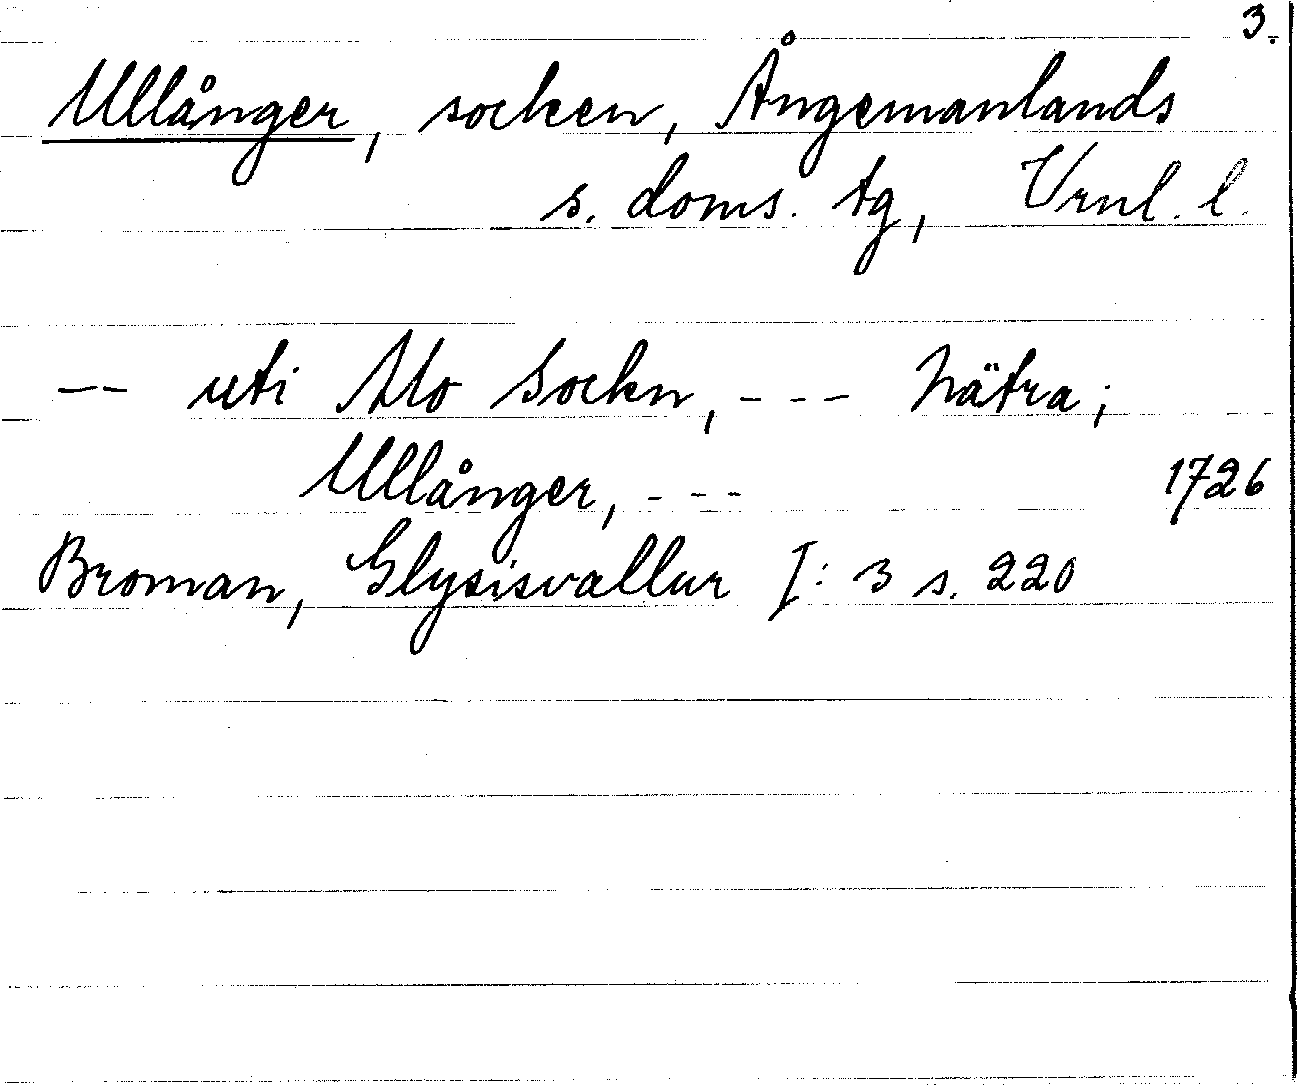 3.
Ullånger, socken, Ångemanlands
s. doms. tg, Vrnl. l.
-- uti Mo Sockn, --- Nätra;
Ullånger, --- 1726
Broman, Glysisvallur I: 3 s. 220